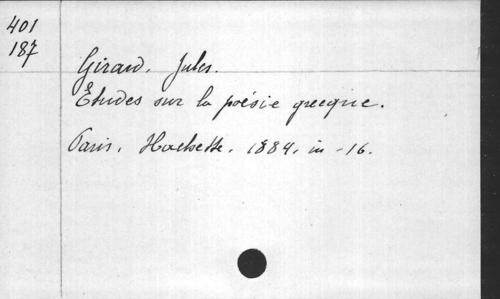 401
187
Girard, Jules.
Études sur la poésie grecque.
Paris, Hachette, 1884, in-16.